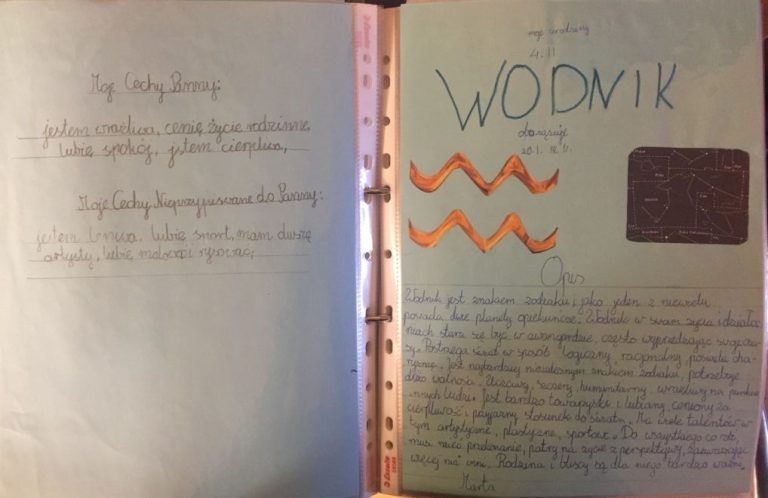 Moje Cechy Panny:
jestem wrażliwa, cenię życie rodzinne,
lubię spokój, jstem cierpliwa,
Moje Cechy Nieprzypiswane do Panny:
jestem leniwa, lubię sport, mam duszę
artysty, lubię malować i rysować,
moje urodziny
4.II
WODNIK
obowiązuje
20.I. 18.II.
Opis
Wodnik jest znakiem zodiaku i jako jeden z niewielu
posiada dwie planety opiekuńcze. Wodnik w swoim życiu i działa
niach stara się być w awangardzie, często wyprzedzając swoje cza
sy. Postrzega świat w sposób logiczny, racjonalny, posiada cha
ryzmę. Jest najbardziej niezależnym znakiem zodiaku, potrzebuje
dużo wolności. Uczciwy, szczery, humanitarny, wrażliwy na punkcie
innych ludzi. Jest bardzo towarzyski i lubiany, ceniony za
cierpliwość i przyjazny stosunek do świata. Ma wiele talentów w
tym artystyczne, plastyczne, sportowe. Do wszystkiego co robi,
musi mieć przekonanie, patrzy na życie z perspektywy, zauważając
więcej niż inni. Rodzina i bliscy są dla niego bardzo ważni.
Marta